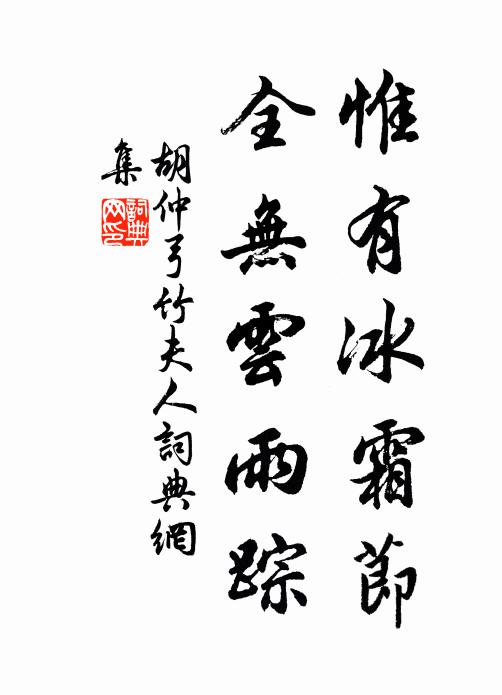 惟有冰霜節
全無雲雨踪
胡仲弓竹夫人詞典網
集
詞典
网印